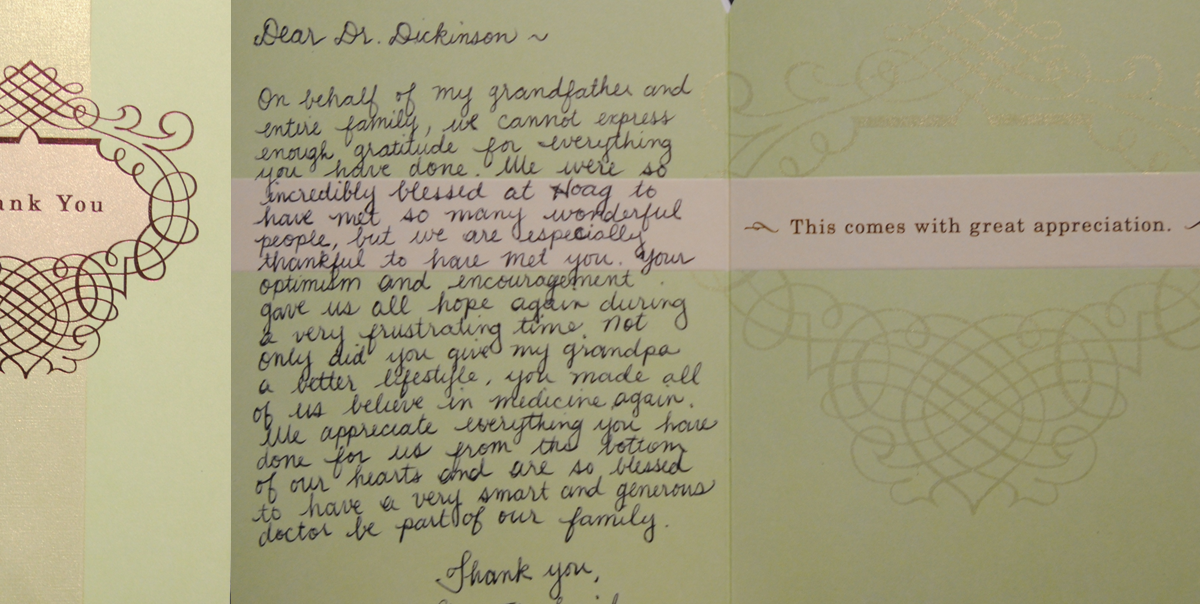 ank You
Dear Dr. Dickinson ~
On behalf of my grandfather and
entire family, we cannot express
enough gratitude for everything
you have done. We were so
incredibly blessed at Hoag to
have met so many wonderful
people, but we are especially
thankful to have met you. Your
optimism and encouragement
gave us all hope again during
a very frustrating time. Not
only did you give my grandpa
a better lifestyle, you made all
of us believe in medicine again.
We appreciate everything you have
done for us from the bottom
of our hearts and are so blessed
to have a very smart and generous
doctor be part of our family.
Thank you,
This comes with great appreciation.